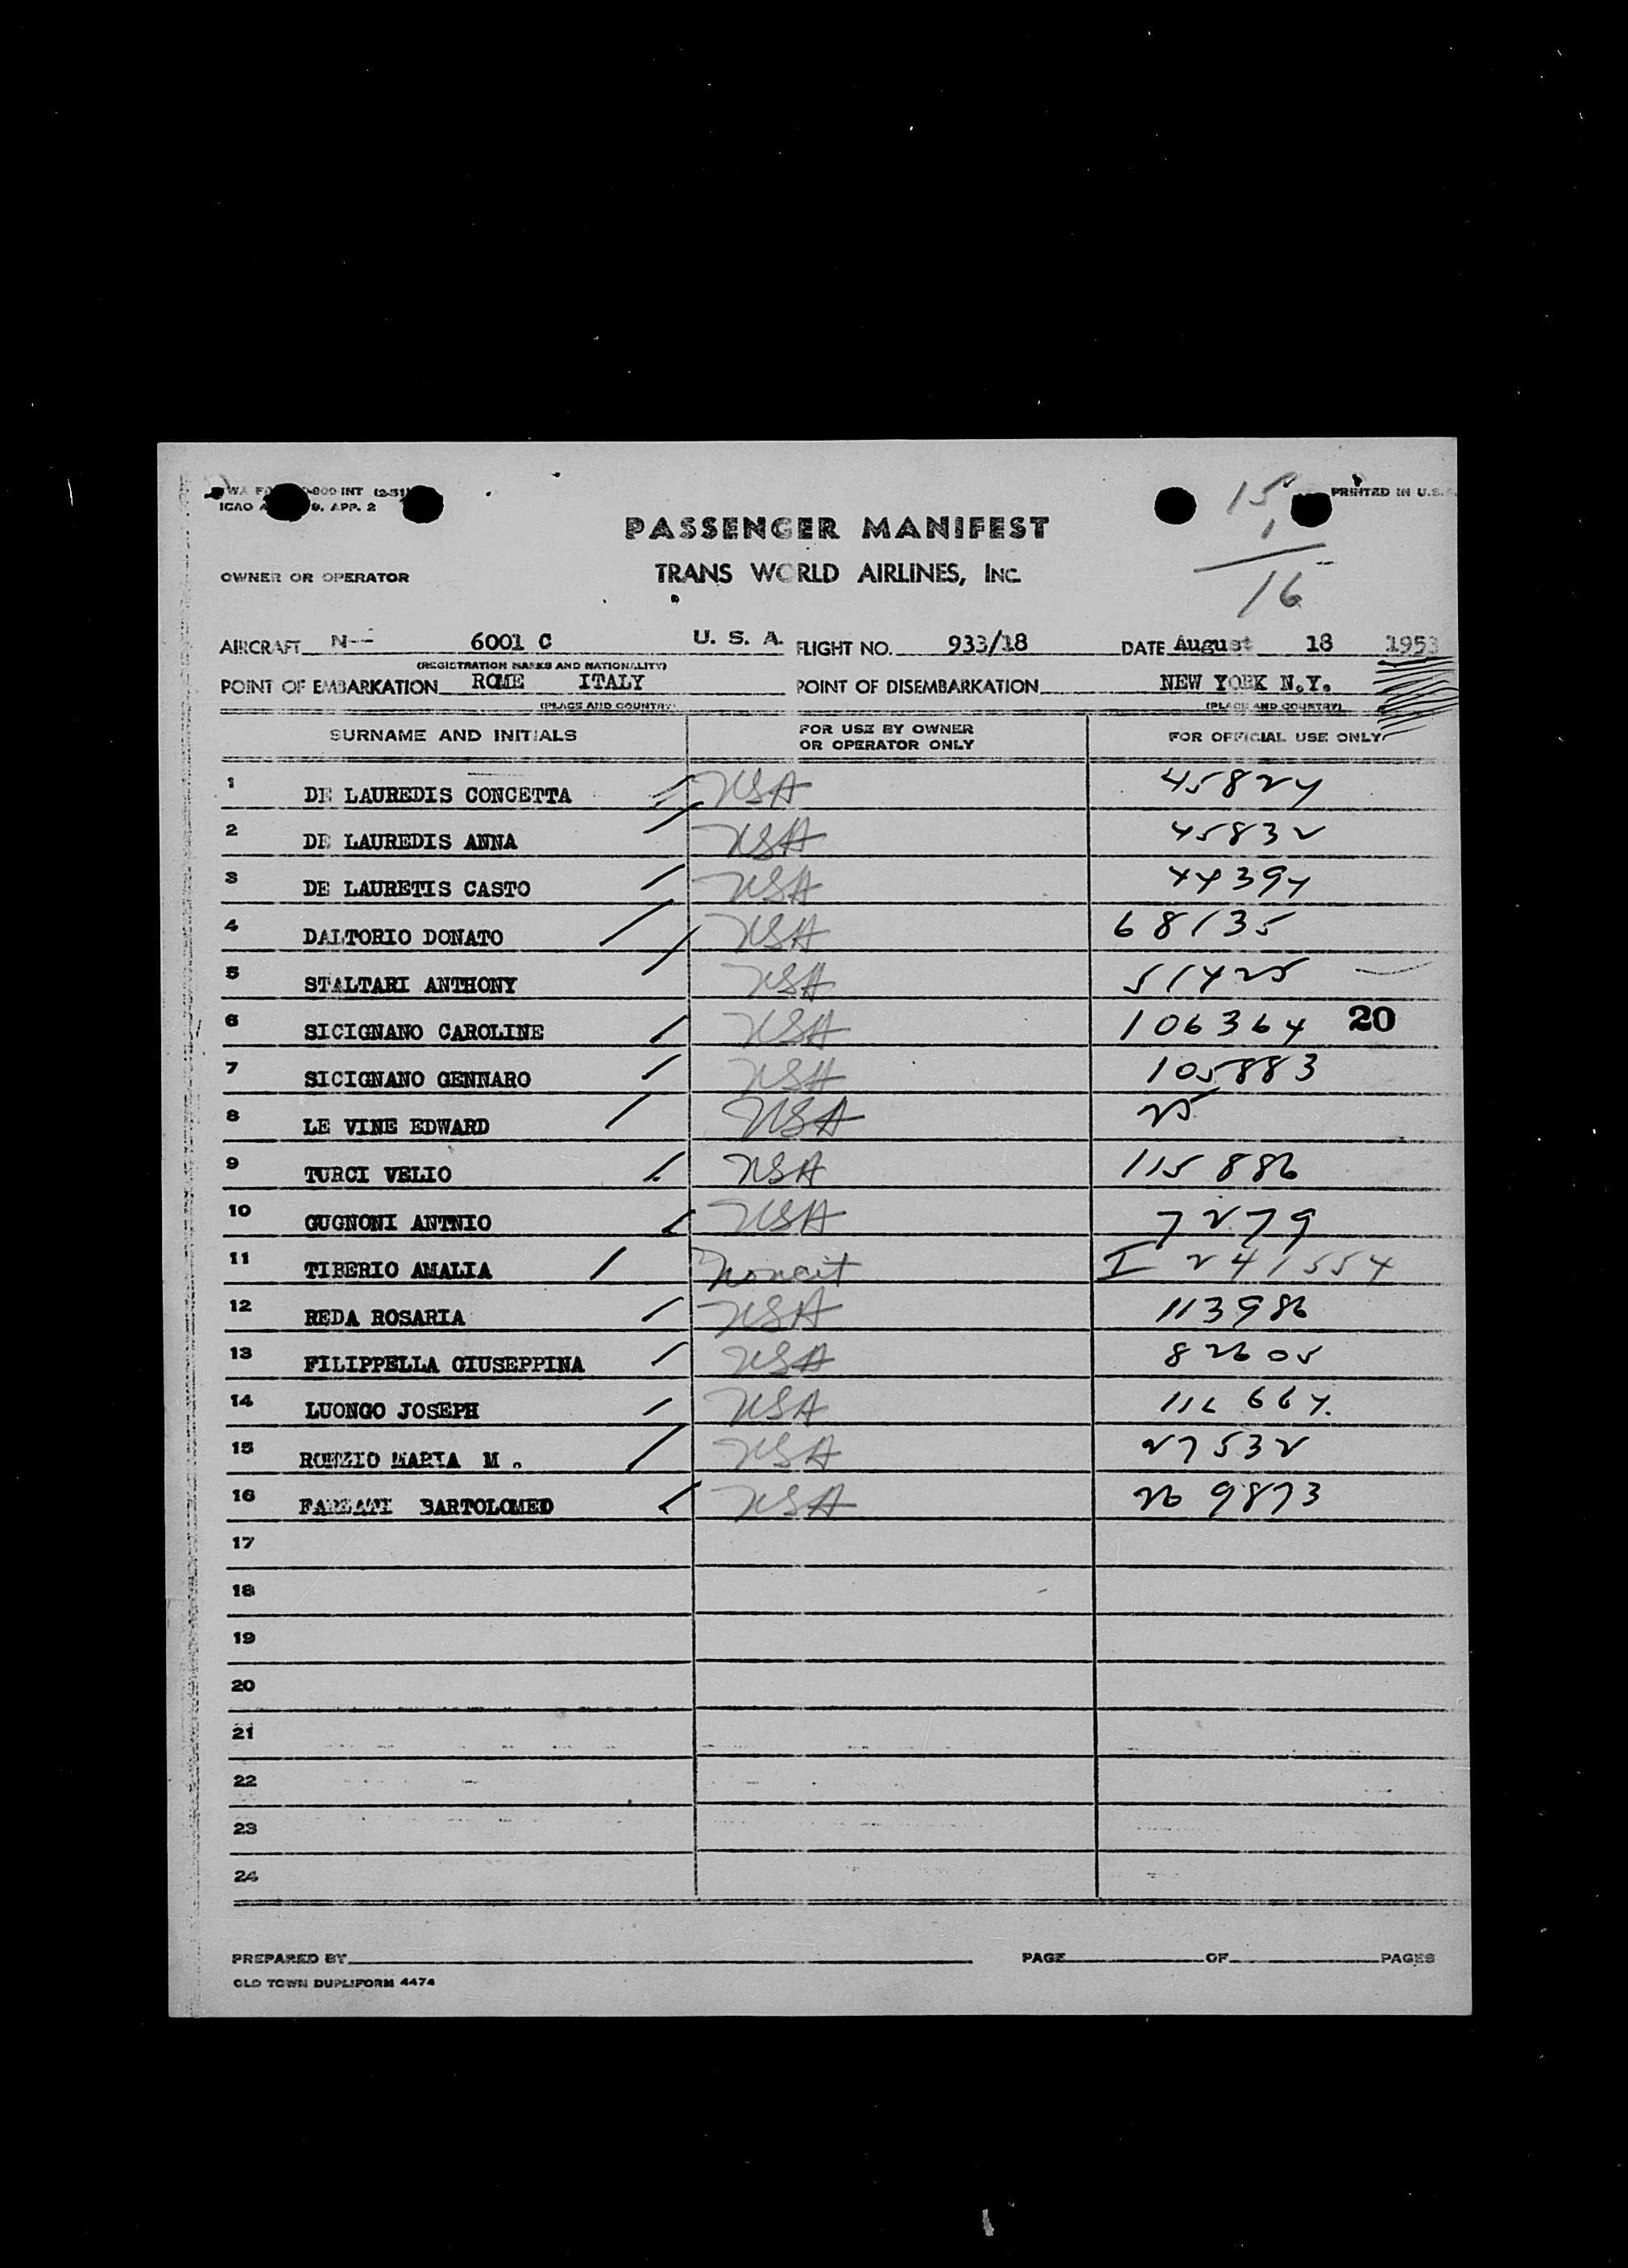 INT (2-51)
PRINTED IN U.S.
ICAO APP. 2
15
1
16
PASSENGER MANIFEST
OWNER OR OPERATOR TRANS WORLD AIRLINES, INC.
AIRCRAFT N-- 6001 C U. S. A. FLIGHT NO. 933/18 DATE August 18 1953
(REGISTRATION MARKS AND NATIONALITY)
POINT OF EMBARKATION ROME ITALY POINT OF DISEMBARKATION NEW YORK N.Y.
(PLACE AND COUNTRY) (PLACE AND COUNTRY)
SURNAME AND INITIALS FOR USE BY OWNER OR OPERATOR ONLY FOR OFFICIAL USE ONLY
1 DE LAUREDIS CONCETTA USA 45824
2 DE LAUREDIS ANNA USA 45832
3 DE LAURETIS CASTO USA 44394
4 DALTORIO DONATO USA 68135
5 STALTARI ANTHONY USA 51425
6 SICIGNANO CAROLINE USA 106364 20
7 SICIGNANO GENNARO USA 105883
8 LE VINE EDWARD USA 25
9 TURCI VELIO USA 115886
10 GUGNONI ANTNIO USA 7279
11 TIBERIO AMALIA Noncit I 241554
12 REDA ROSARIA USA 113986
13 FILIPPELLA GIUSEPPINA USA 82605
14 LUONGO JOSEPH USA 116664
15 MARIA M. USA 27532
16 BARTOLOMEO USA 269873
17
18
19
20
21
22
23
24
PREPARED BY PAGE OF PAGES
OLD TOWN DUPLIFORM 4474